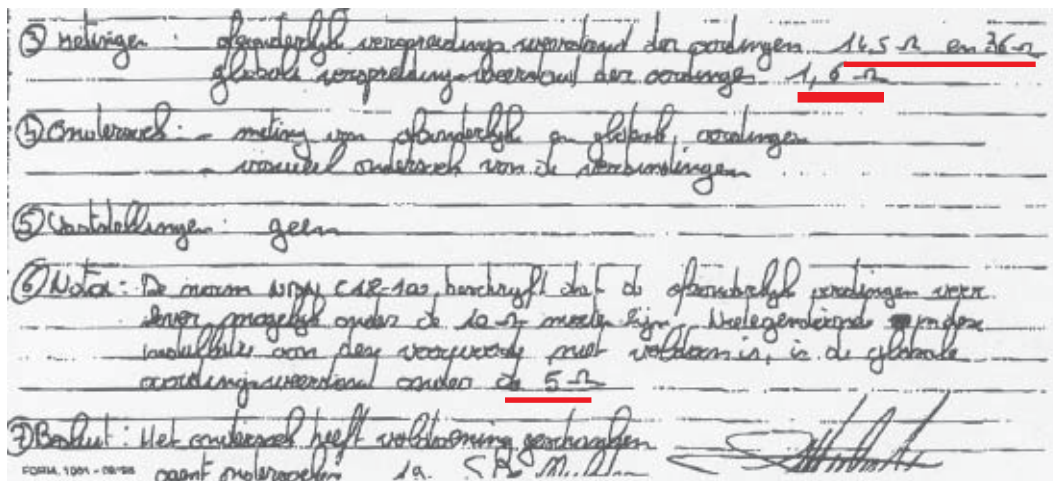 ③ Metingen : afzonderlijk verspreidings weerstand der aardingen 14,5 Ω en 36 Ω
globale verspreiding-weerstand der aardingen 1,6 Ω
④ Onderzoek : - meting van afzonderlijk en globale aardingen
- visueel onderzoek van de verbindingen
⑤ Vaststellingen : geen
⑥ Nota : De norm NBN C18-100 beschrijft dat de afzonderlijk aardingen voor
mogelijk onder de 10 Ω moeten zijn. Niettegenstaande in deze
installatie aan dey voorwaarde niet voldaan is, is de globale
aardingsweerstand onder de 5 Ω
⑦ Besluit : Het onderzoek heeft voldoening geschonken
FORM. 1001 - 08/98 agent onderzoeker